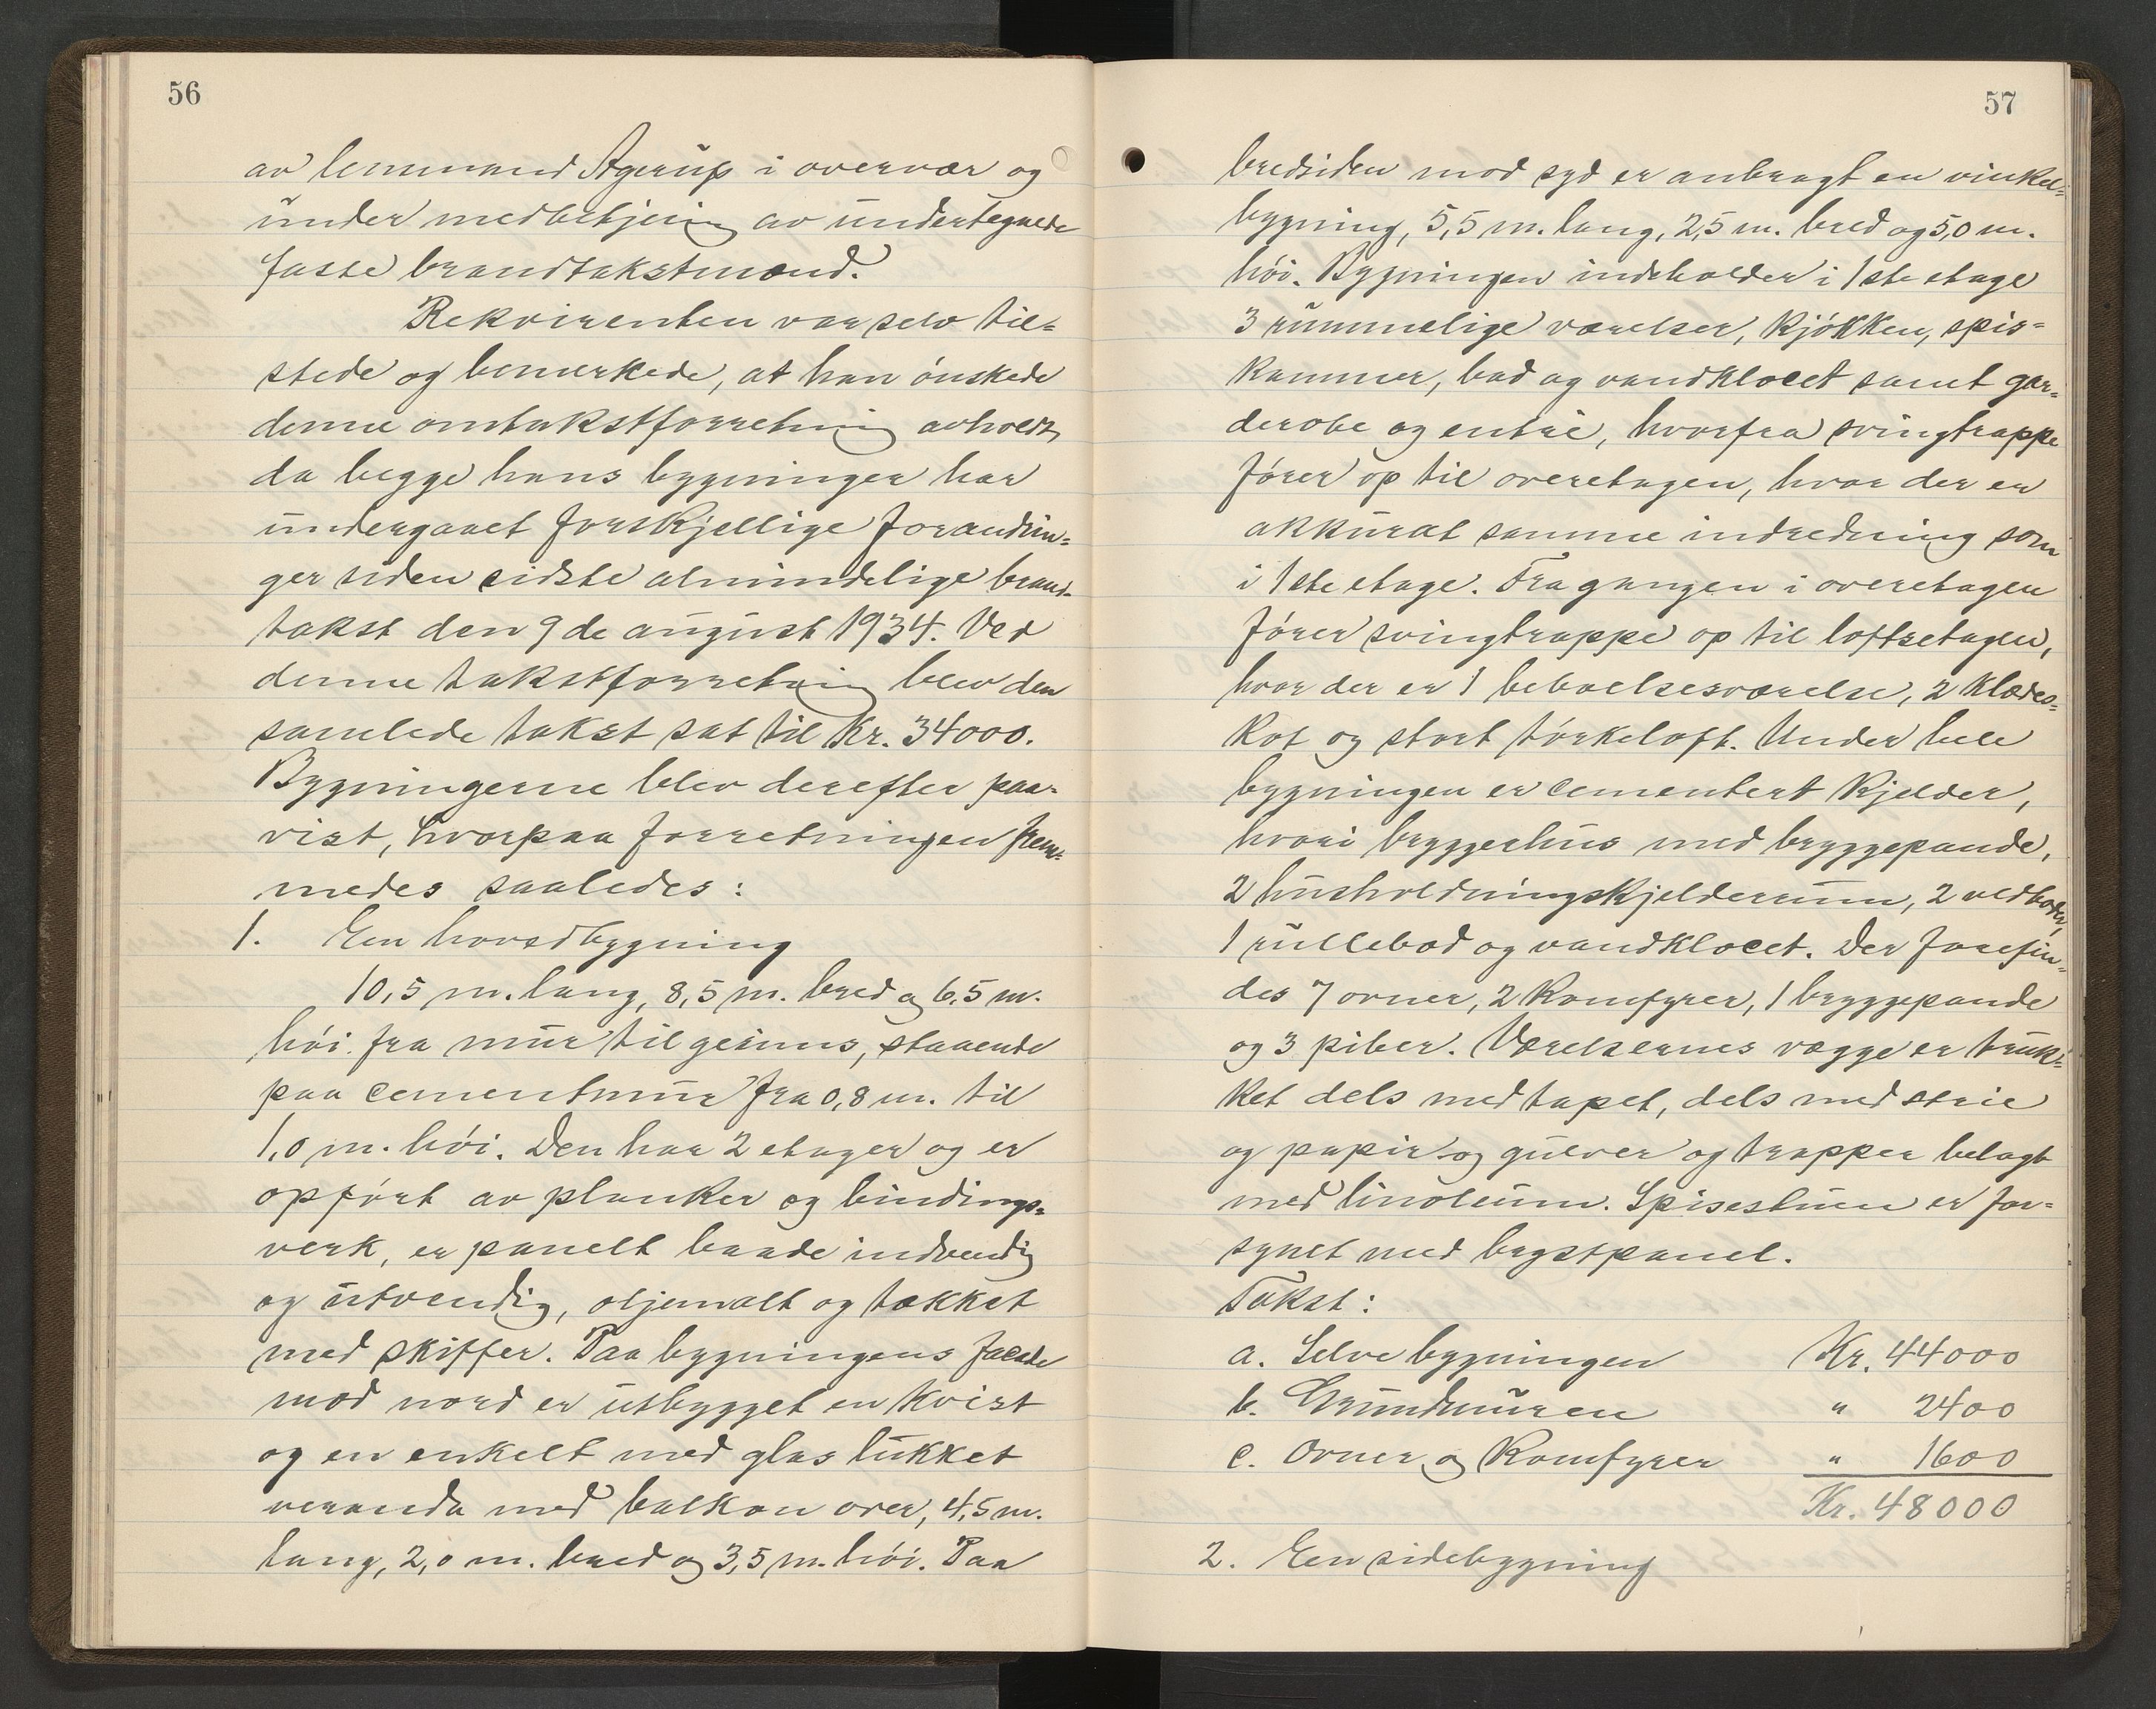 56
av lensmand Agerup i overvær og
under medbetjening av undertegnede
faste brandtakstmænd.
Rekvirenten var selv til=
stede og bemerkede, at han ónskede
denne omtakstforretning avholdt,
da begge hans bygninger har
undergaaet forskjellige forandrin=
ger siden sidste almindelige brand=
takst den 9de august 1934. Ved
denne takstforretning blev den
samlede takst sat til Kr. 34000.
Bygningerne blev derefter paa=
vist, hvorpaa forretningen frem=
medes saaledes:
1. En hovedbygning
10,5 m. lang, 8,5 m. bred og 6,5 m.
hói fra mur til gesims, staaende
paa cementmur fra 0,8 m. til
1,0 m. hói. Den har 2 etager og er
opfórt av planker og bindings=
verk, er panelt baade indvendig
og utvendig, oljemalt og tækket
med skiffer. Paa bygningens facade
mod nord er utbygget en kvist
og en enkelt med glas lukket
veranda med balkon over, 4,5 m.
lang, 2,0 m. bred og 3,5 m. hói. Paa
57
bredsiden mod syd er anbragt en vinkel=
bygning, 5,5 m. lang, 2,5 m. bred og 5,0 m.
hói. Bygningen indeholder i 1ste etage
3 rummelige værelser, kjókken, spis=
kammer, bad og vandklocet samt gar=
derobe og entré, hvorfra svingtrappe
fórer op til overetagen, hvor der er
akkurat samme indredning som
i 1ste etage. Fra gangen i overetagen
fórer svingtrappe op til loftsetagen,
hvor der er 1 beboelsesværelse, 2 klædes=
kot og stort tórkeloft. Under hele
bygningen er cementert kjelder,
hvori bryggerhus med bryggepande,
2 husholdningskjelderrum, 2 vedboder,
1 rullebod og vandklocet. Der forefin=
des 7 ovner, 2 komfyrer, 1 bryggepande
og 3 piber. Værelsernes vægge er truk=
ket dels med tapet, dels med strie
og papir og gulver og trapper belagt
med linoleum. Spisestuen er for=
synet med brystpanel.
Takst:
a. Selve bygningen Kr. 44000
b. Grundmuren " 2400
c. Ovner og Komfyrer " 1600
Kr. 48000
2. En sidebygning